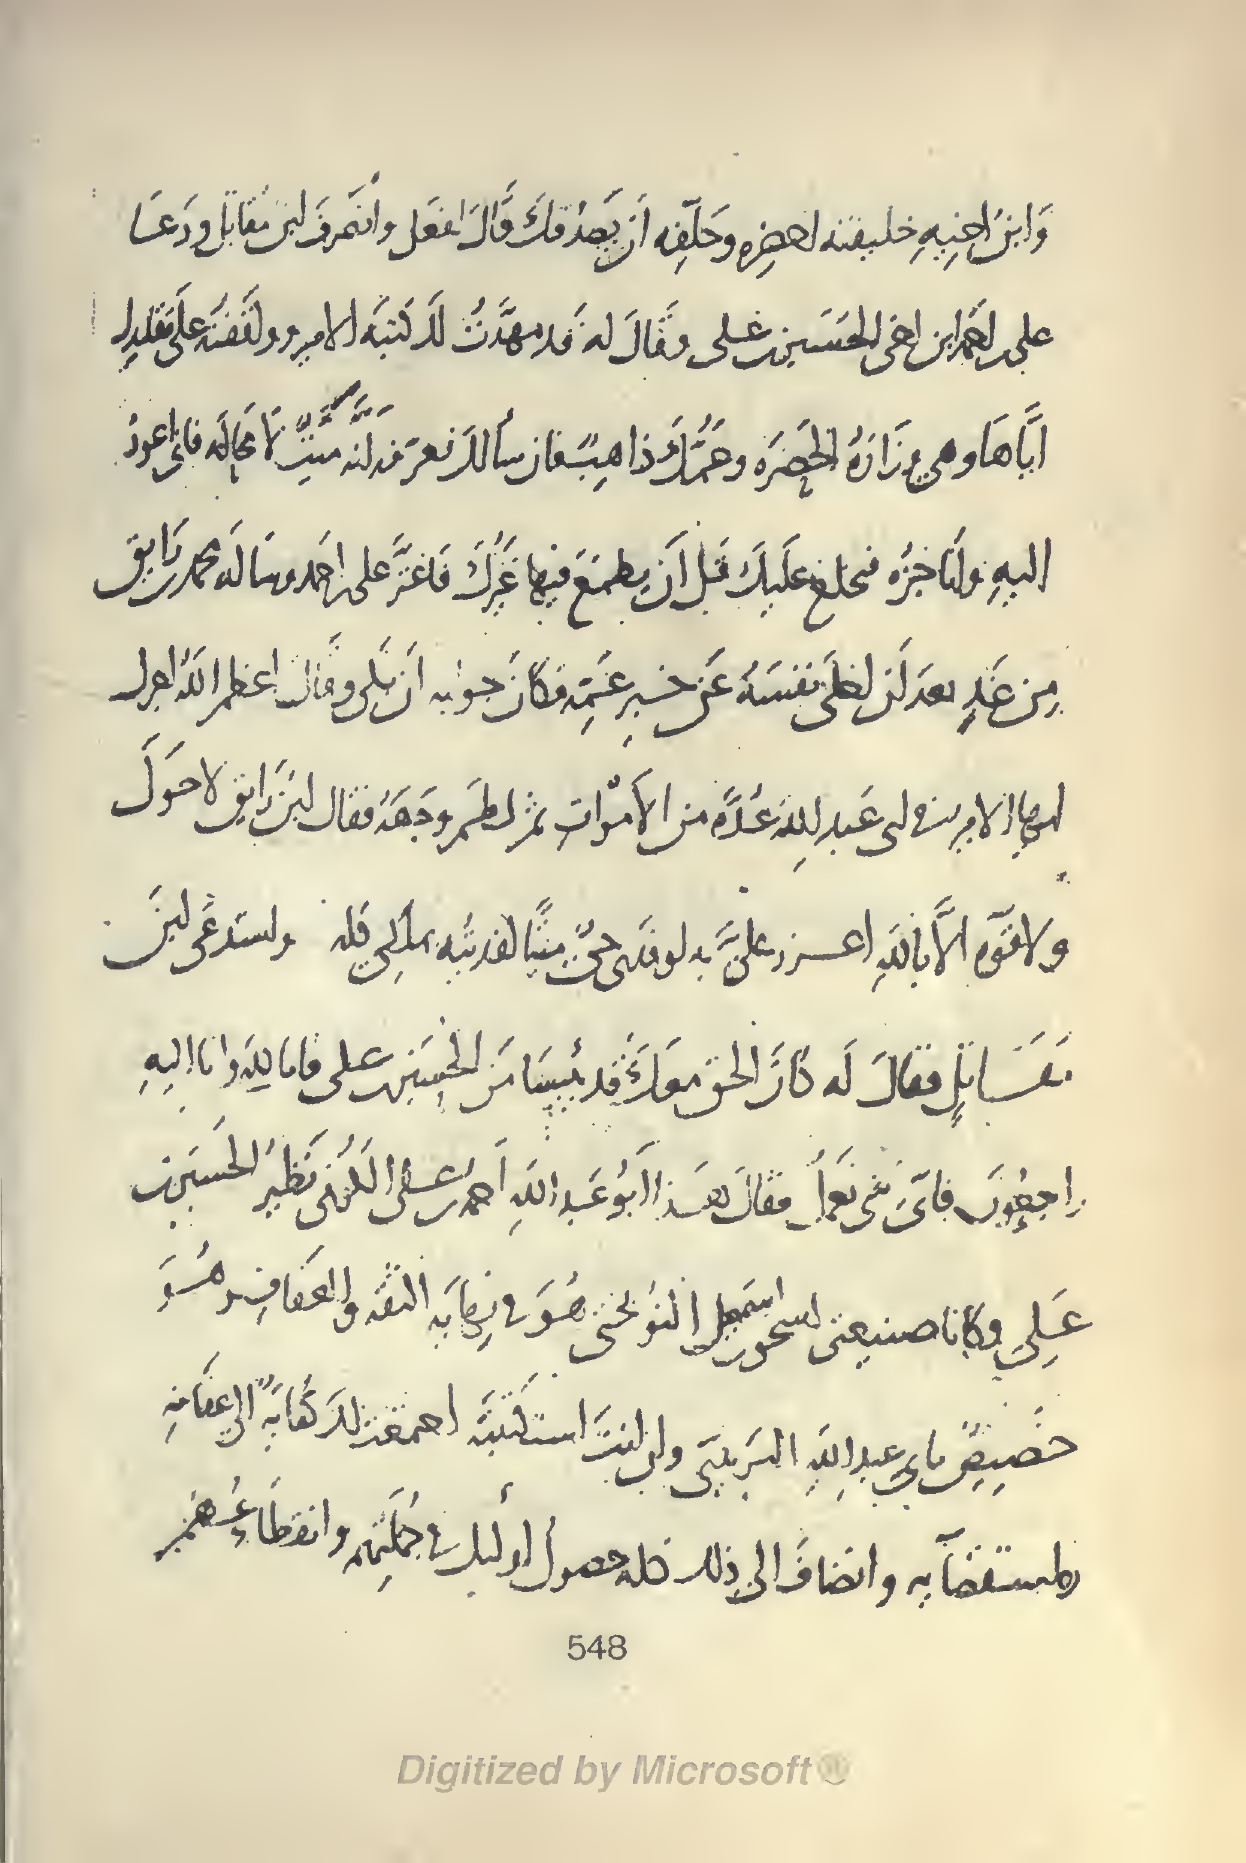 وَابنُ اخِيهِ خليفته احضِره وحَلِّفه اَن يَصدُقكَ قَالَ افعَل وانصَرفَ ابن مقاتل ودَعَا
على احمد ابن اخى الحُسَين بن على وقَالَ له قد مهَّدتُ لك كتبَه الامير ووافقته على تقليدك
ايَّاهَا وهى وزَارَةُ الحَضرَه وعَمُّك ذاهب فان سألك فعرّفه انّه ميّت لا محالَه فانى اعودُ
اليهِ وانَاجزُه فيخلع عليكَ قَبل اَن يطمَعَ فيها غَيرُك فَاغترَّ على بن احمد وساله محمد بن رَايق
مِن غَدٍ بعد اَن اخلَى نفسَهُ عَن خبرِ عَمِّه فكانَ جوابه اَن بكَى وقَالَ اعظم اللهُ اجرك
ايها الامير فى ابى عَبد اللهِ عُدَّه من الاموَاتِ ثم لطَم وجَهَهُ فقال ابن رَايق لا حَولَ
ولا قوّه الّا باللهِ اعزز علىَّ به لو فدى حىٌّ ميّتًا لفديتُه بمالِى كله واستدعَى ابنَ
مقَاتلٍ فقالَ لَه كانَ الحق معَكَ قَد يئِسنَا مَن الحُسَين بن على فانا للهِ وانا اليهِ
راجعُونَ فاىَّ شى نَعملُ فقالَ هَذا اَبُو عَبد اللهِ اَحمد بن عَلى الكوفى نظيرُ الحُسَين بن
عَلِى وكانا صنيعتى اسحق بن اسمعيل النوبختى هُوَ فى نِهايه الثقه والعفَافِ وهُوَ
خصِيصٌ بابى عبد اللهِ البَريدى وان انتَ استكتبته اجتمعَت لك كفايَةً الى عفَافِه
واستقضآيه وانضافَ الى ذلك كله حصول اولئك فى جُملَتِهم وانقطَاعُهُم
548
Digitized by Microsoft®